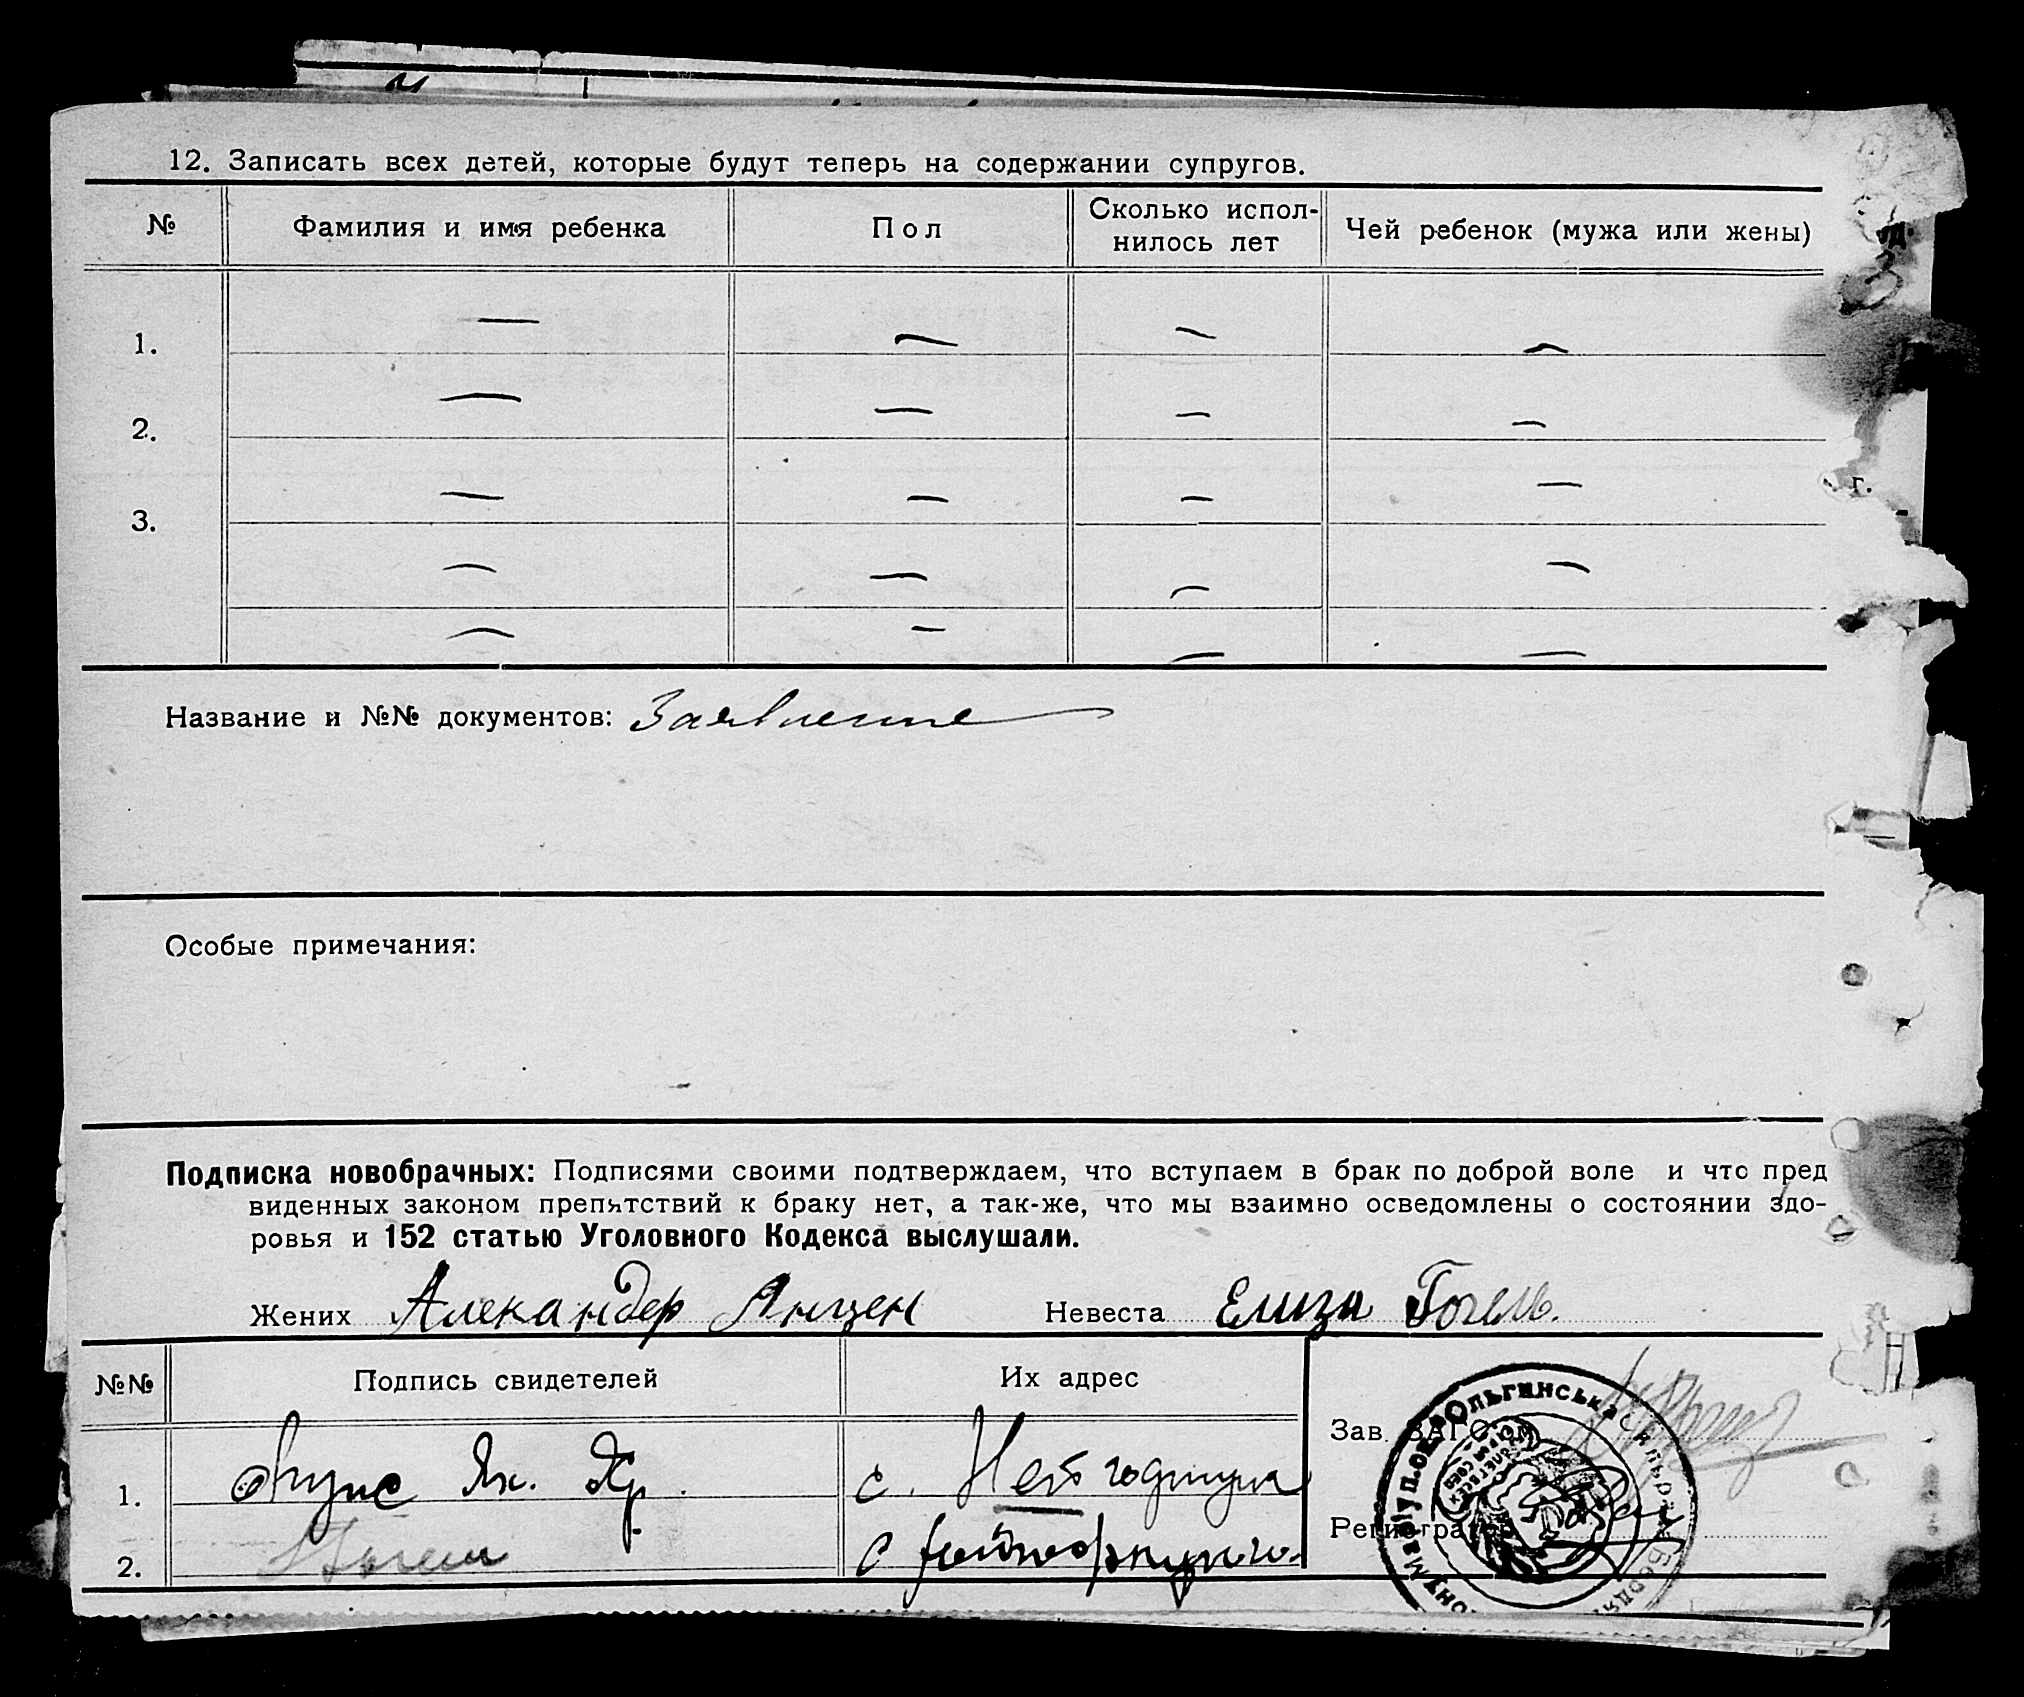 12. Записать всех детей, которые будут теперь на содержании супругов.
№ Фамилия и имя ребенка Пол Сколько испол- Чей ребенок (мужа или жены)
нилось лет
1.
2.
3.
г.
Название и №№ документов: Заявление
Особые примечания:
Подписка новобрачных: Подписями своими подтверждаем, что вступаем в брак по доброй воле и что пред
виденных законом препятствий к браку нет, а так-же, что мы взаимно осведомлены о состоянии здо-
ровья и 152 статью Уголовного Кодекса выслушали.
Жених Алекандер Янцен Невеста Елиза Гогель.
№№ Подпись свидетелей Их адрес
Зав. ЗАГСом
1. Як. с.
Регистратор
2. Гогель с
Ольгинська